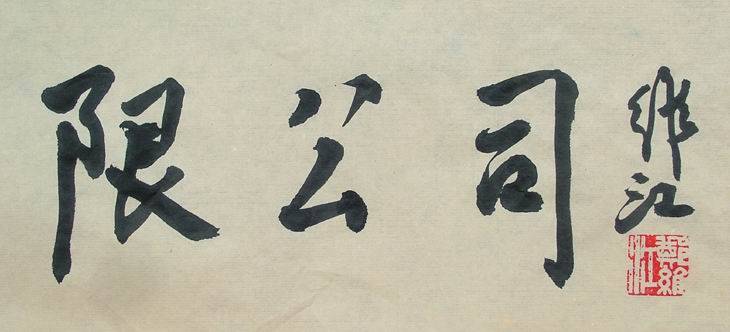 限公司
维江